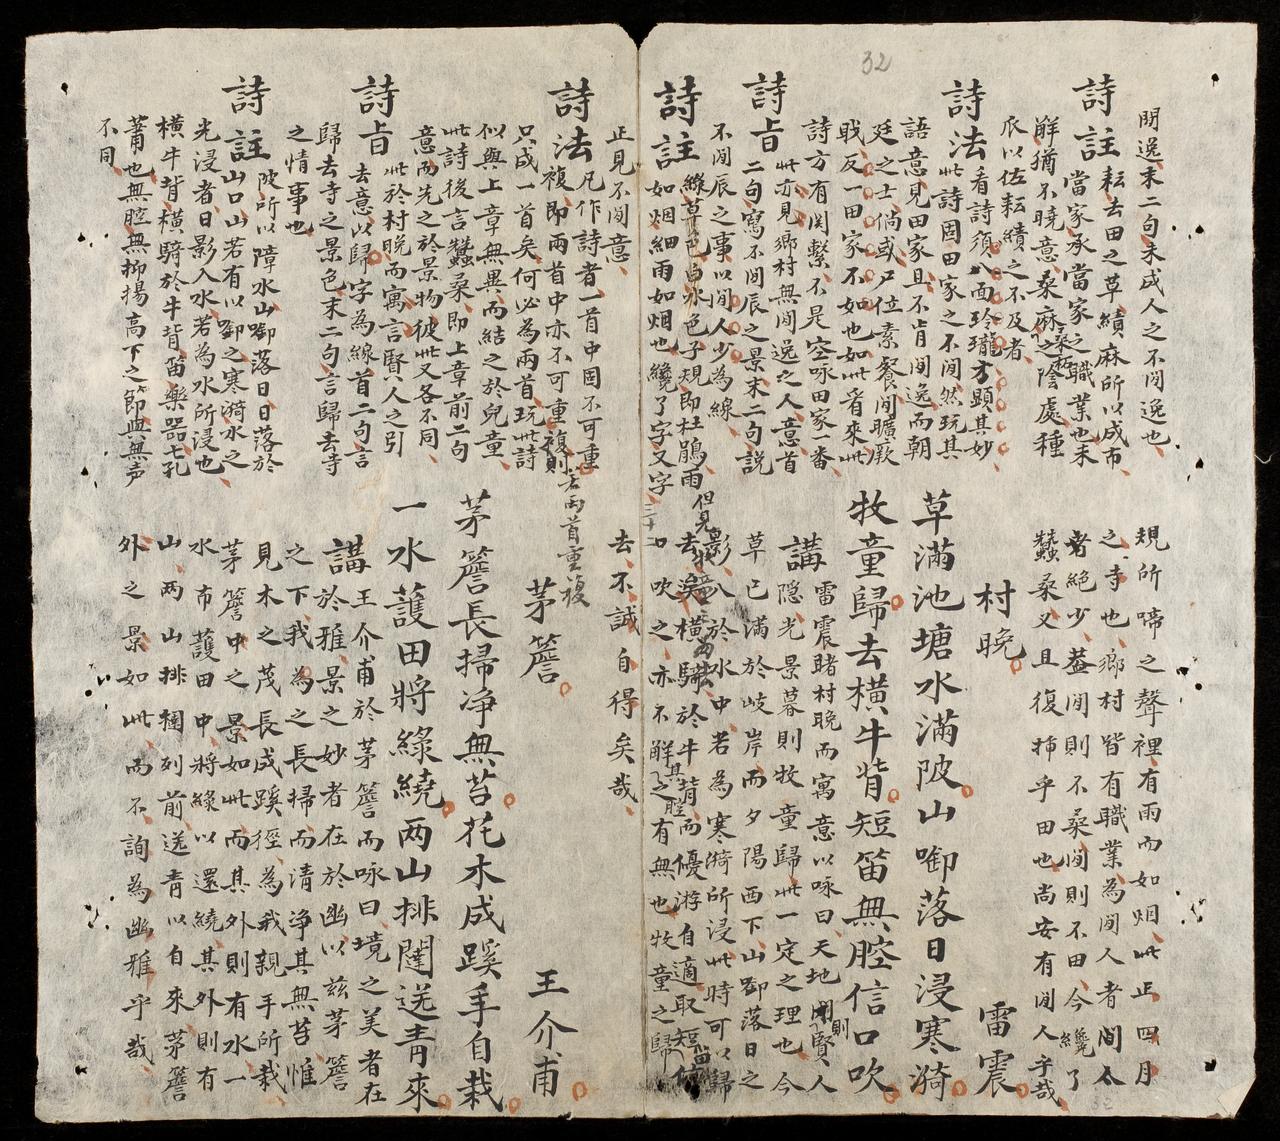 閒逸末二句未成人之不閒逸也
詩註耘去田之草績麻所以成布
當家承當家之職業也未
觧猶不曉意桑麻之陰處種
瓜以佐耘績之不及者
詩法看詩須八面玲瓏方顕其妙
此詩固田家之不閒然玩其
語意見田家且不肯閒逸而朝
廷之士倘或尸位素餐閒曠厥
戝反一田家不如也如此看來此
詩方有関繫不是空咏田家一畨
詩旨此亦見鄉村無閒逸之人意首
二句寫不閒辰之景末二句説
不閒辰之事以閒人少為線
詩註綠草色白水色子規即杜鵑雨
如烟細雨如烟也纔了字又字
正見不閒意
詩法凡作詩者一首中固不可重
複即兩首中亦不可重複則
若兩首重複
只成一首矣何必為兩首玩此詩
似與上章無異而結之於兒童
此詩後言蠶桑即上章前二句
意而先之於景物彼此又各不同
詩旨此於村晚而寓言賢人之引
去意以歸字為線首二句言
歸去寺之景色末二句言歸去寺
之情事也
詩註陂所以障水山啣落日日落於
山口山若有以啣之寒漪水之
光浸者日影入水若為水所浸也
橫牛背橫騎於牛背笛樂器七孔
莆也無腔無抑揚高下之節與無声
不同
規所啼之聲裡有雨而如烟此正四月
之寺也鄉村皆有職業為閒人者
絶少葢閒則不桑閒則不田今纔了
蠶桑又且復揷乎田也尚安有閒人乎哉
村晚
雷震
草滿池塘水滿陂山啣落日浸寒漪
牧童歸去橫牛背短笛無腔信口吹
講雷震睹村晚而寓意以咏曰天地閉則賢人
隠光景暮則牧童歸此一定之理也今
草已滿於岐岸而夕陽西下山啣落日之
影入於水中若為寒漪所浸此時可以歸
去矣
但見
橫騎於牛背而優游自適取短笛信
口吹之亦不觧其腔之有無也牧童之歸
去不誠自得矣哉
茅簷
王介甫
茅簷長掃净無苔花木成蹊手自栽
一水護田將綠繞两山排闥送青來
講王介甫於茅簷而咏曰境之美者在
於雅景之妙者在於幽以兹茅簷
之下我為之長掃而清淨其無苔惟
見木之茂長成蹊徑為我親手所栽
茅簷中之景如此而其外則有水一
水市護田中將綠以還繞其外則有
山两山排欄列前送青以自來茅簷
外之景如此而不詢為幽雅乎哉
32